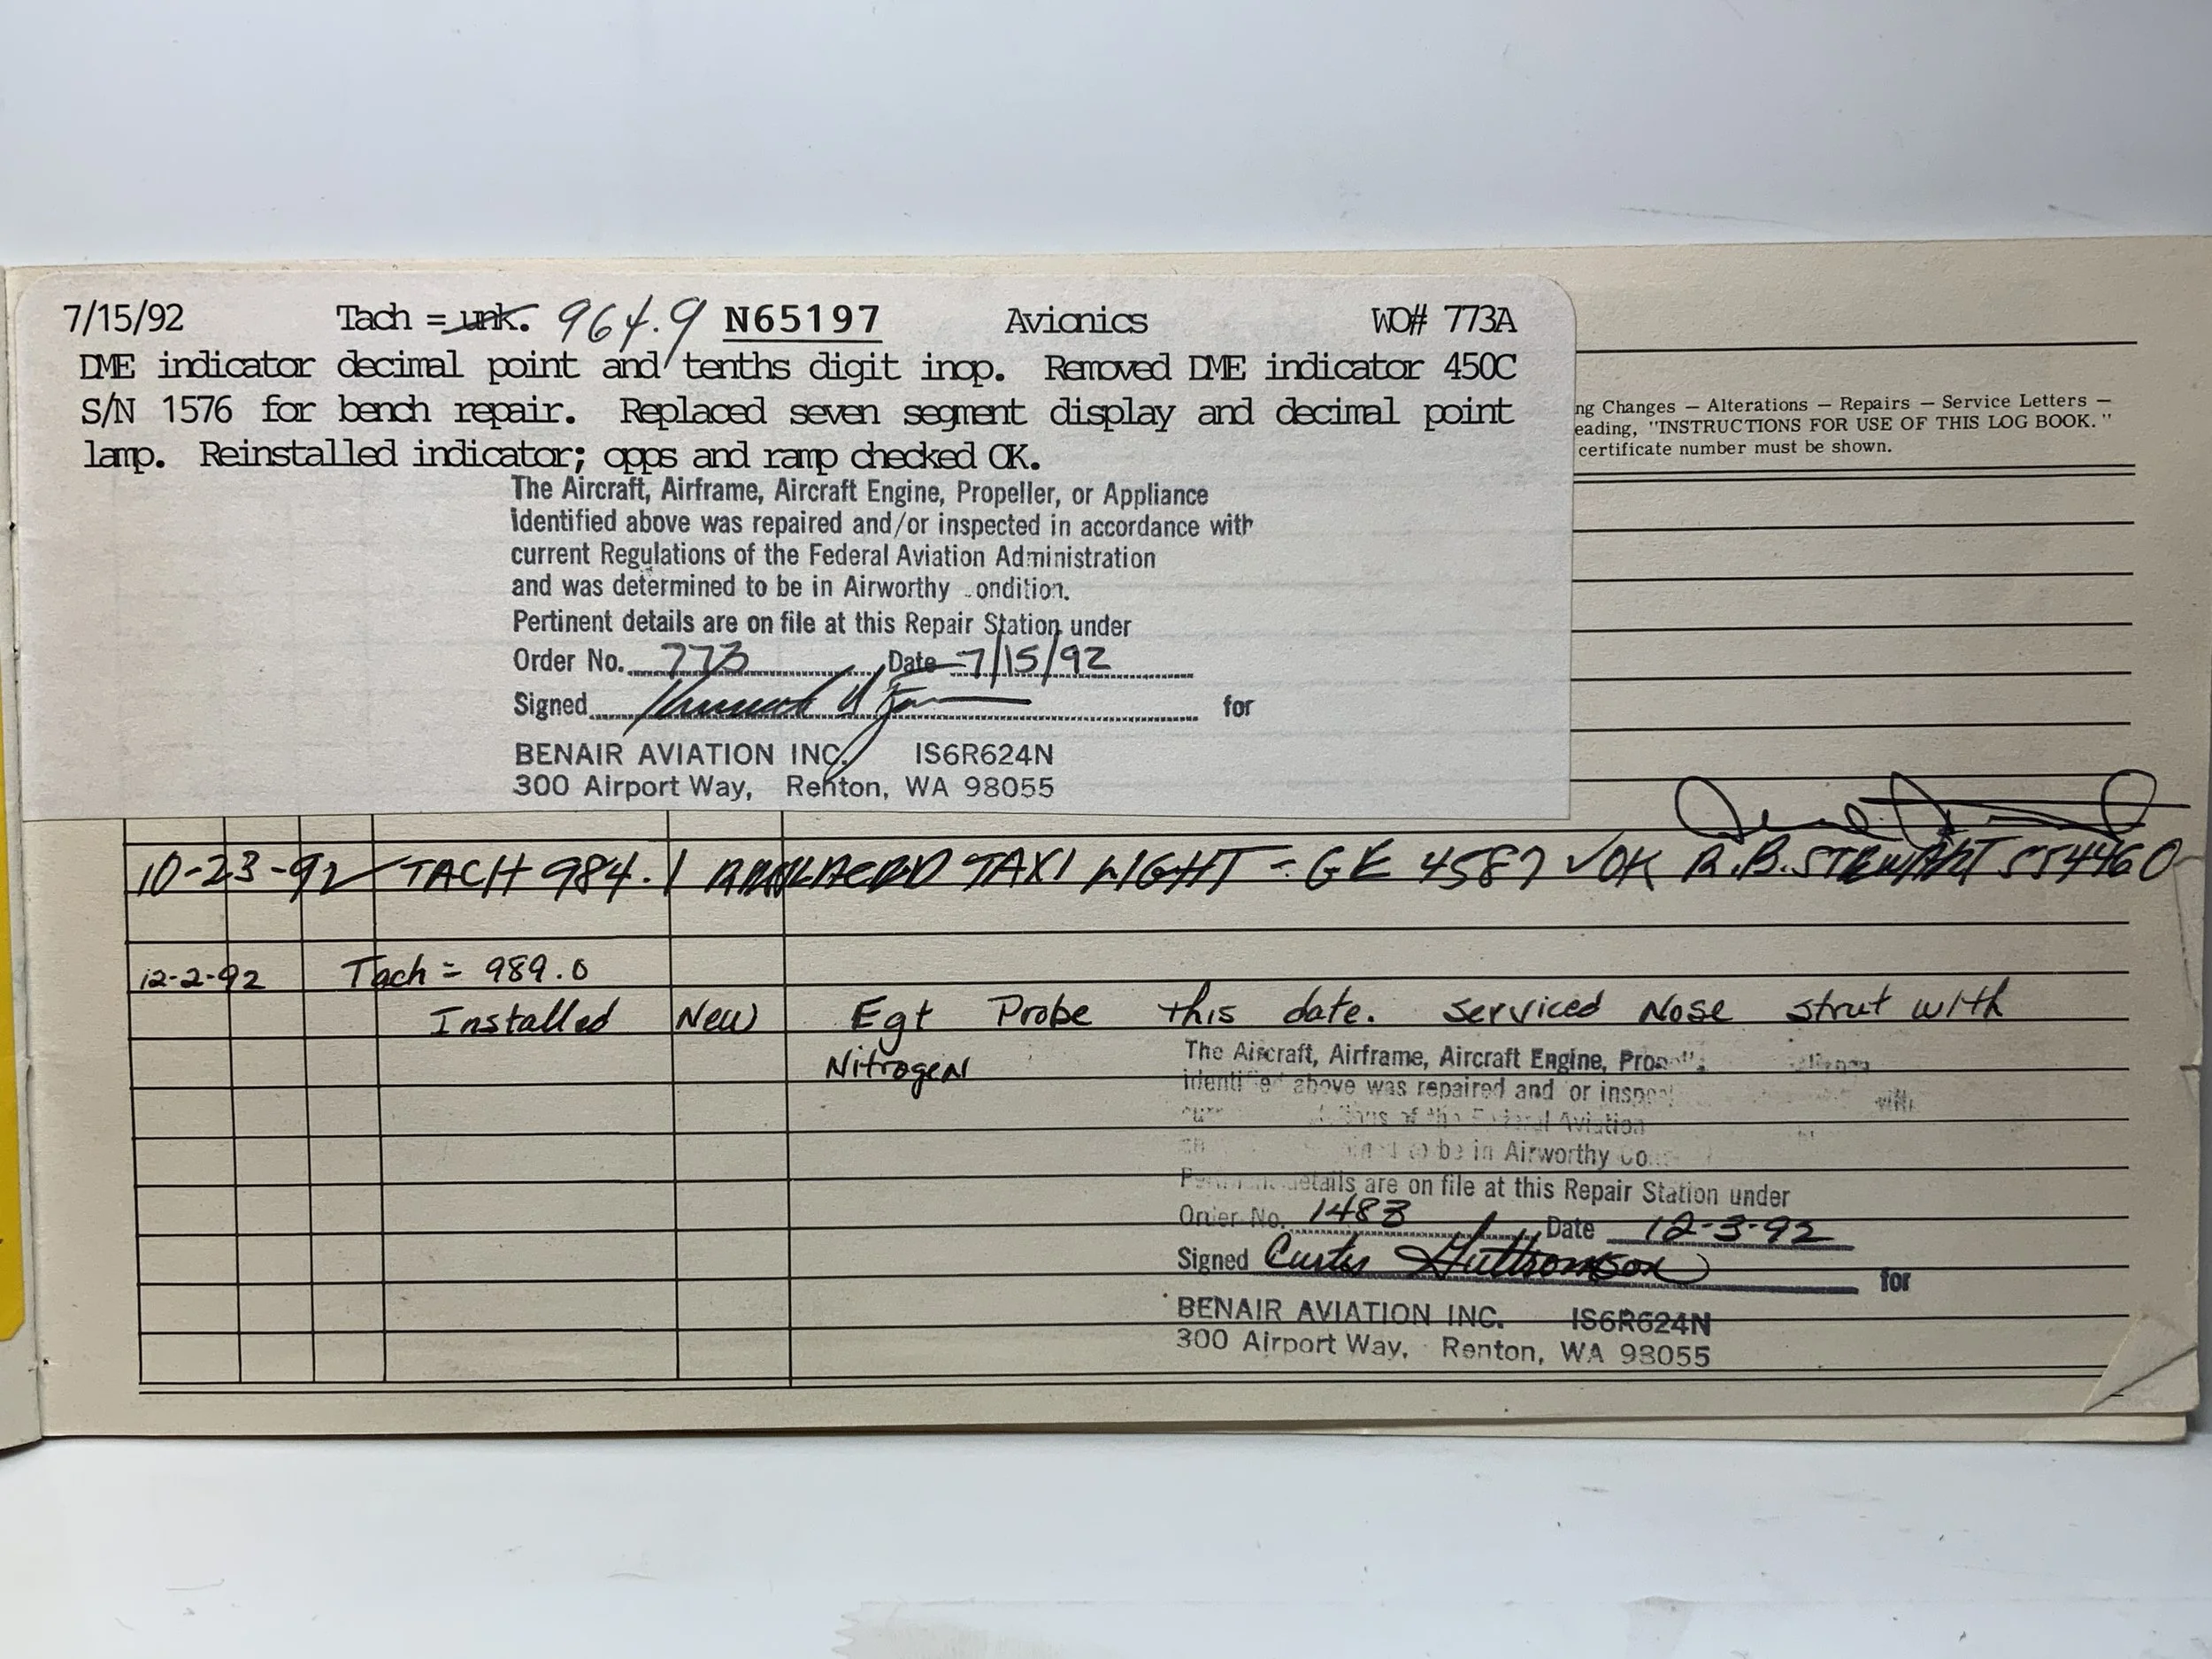 7/15/92 Tach = unk. 964.9 N65197 Avionics WO# 773A
DME indicator decimal point and tenths digit inop. Removed DME indicator 450C
S/N 1576 for bench repair. Replaced seven segment display and decimal point
lamp. Reinstalled indicator; opps and ramp checked OK.
The Aircraft, Airframe, Aircraft Engine, Propeller, or Appliance
identified above was repaired and/or inspected in accordance with
current Regulations of the Federal Aviation Administration
and was determined to be in Airworthy ondition.
Pertinent details are on file at this Repair Station under
Order No. 773 Date 7/15/92
Signed for
BENAIR AVIATION INC. IS6R624N
300 Airport Way, Renton, WA 98055
ng Changes — Alterations — Repairs — Service Letters —
eading, "INSTRUCTIONS FOR USE OF THIS LOG BOOK."
certificate number must be shown.
10-23-92 TACH 984.1 TAXI LIGHT - GE 4587 √OK R.B. STEWART
12-2-92 Tach = 989.0
Installed New Egt Probe this date. Serviced Nose strut with
Nitrogen
The Aircraft, Airframe, Aircraft Engine,
above was repaired and or
Aviation
to be in Airworthy
details are on file at this Repair Station under
Order No. 1483 Date 12-3-92
Signed Curtis for
BENAIR AVIATION INC. IS6R624N
300 Airport Way, Renton, WA 98055